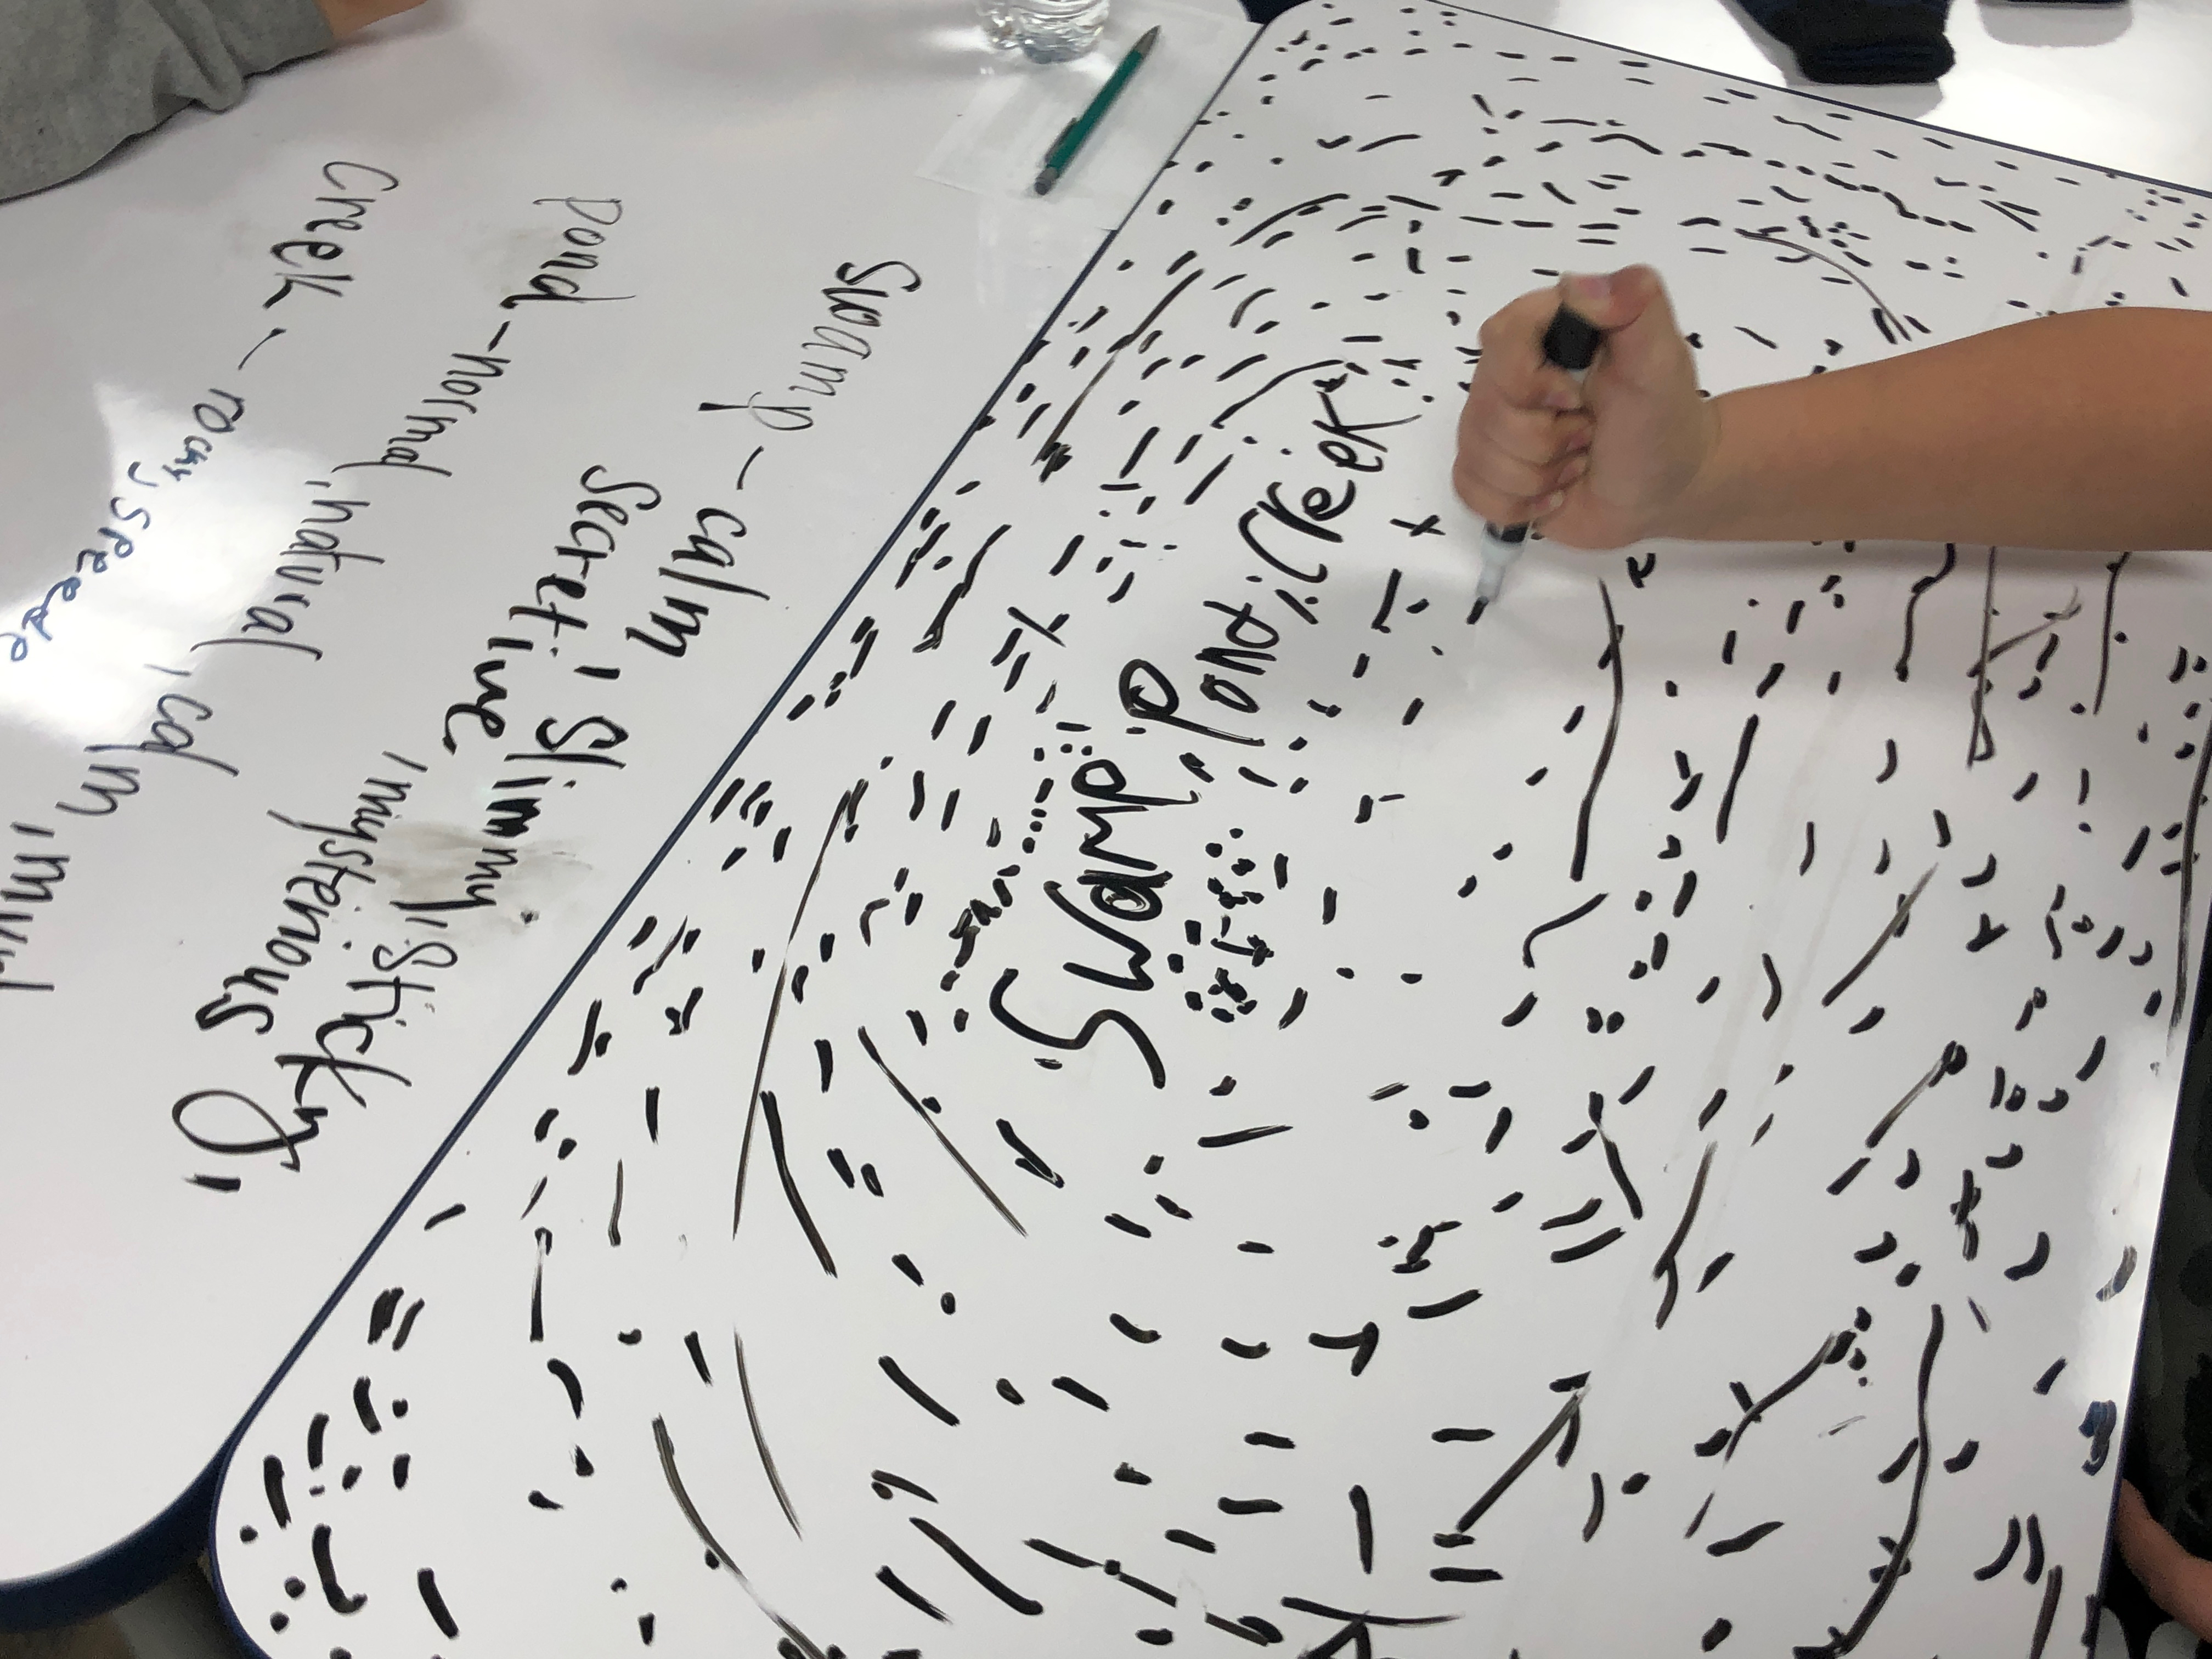 Swamp - calm, Slimmy, Sticky,
Secretive, mysterious
Pond - normal, natural, calm,
Creek - rocky,
Swamp,
Pond, Creek